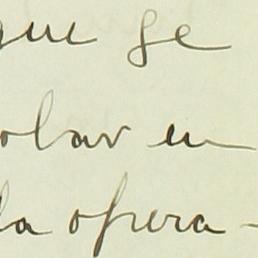 que se
olar en
la opera-